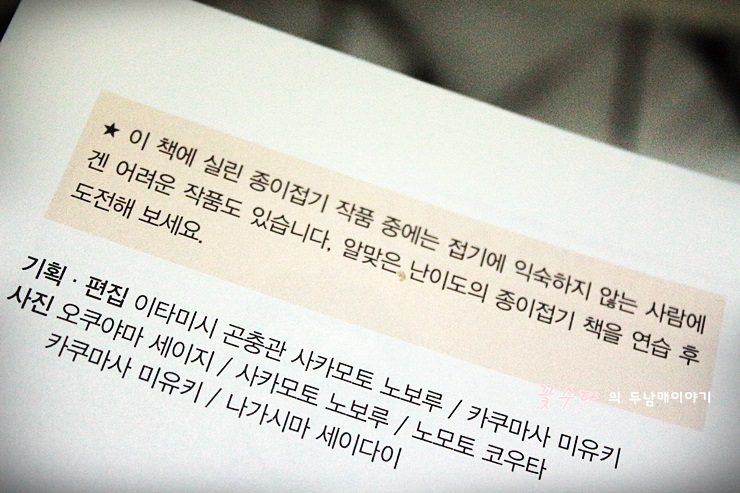 ★ 이 책에 실린 종이접기 작품 중에는 접기에 익숙하지 않는 사람에
겐 어려운 작품도 있습니다. 알맞은 난이도의 종이접기 책을 연습 후
도전해 보세요.
기획 · 편집 이타미시 곤충관 사카모토 노보루 / 카쿠마사 미유키
사진 오쿠야마 세이지 / 사카모토 노보루 / 노모토 코우타
카쿠마사 미유키 / 나가시마 세이다이
의 두남매이야기